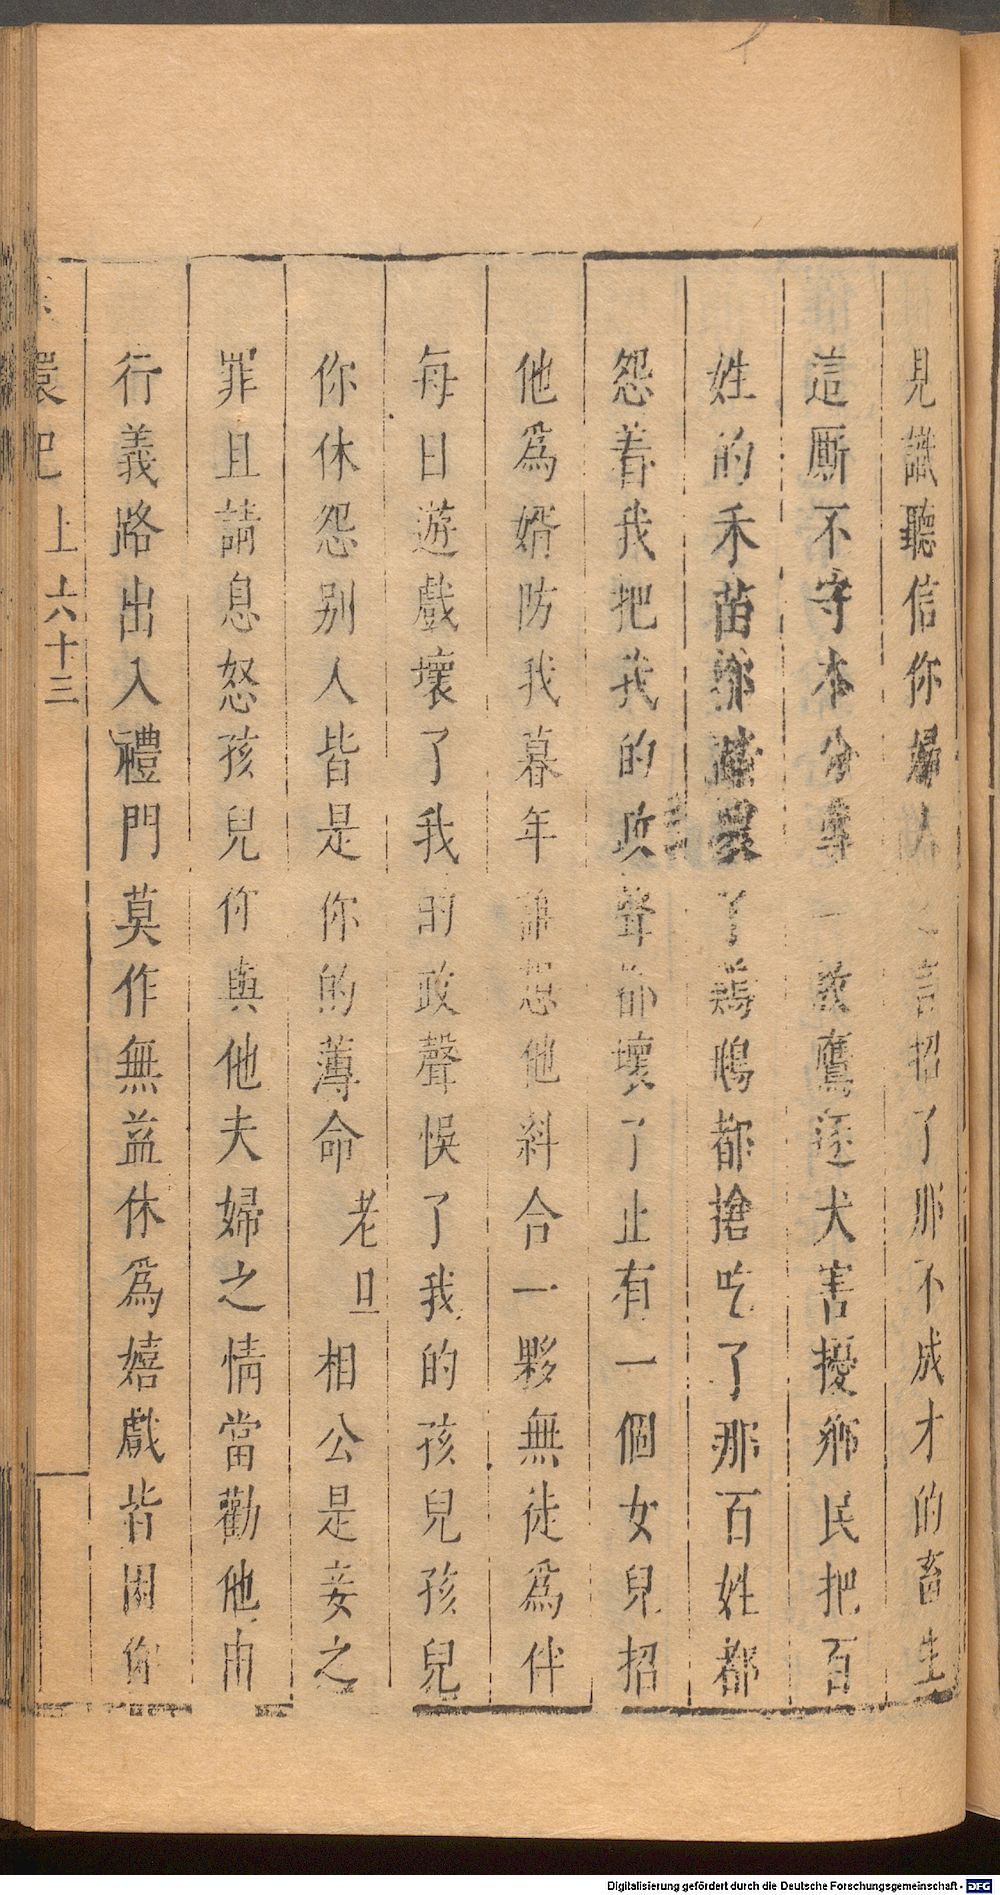 見識聽信你婦人之言招了那不成才的畜生
這厮不守本分專一放鷹逐犬害擾鄉民把百
姓的禾苗都踏壞了鵝鴨都搶吃了那百姓都
怨着我把我的政聲都壞了止有一個女兒招
他爲婿防我暮年誰想他糾合一夥無徒爲伴
每日遊戲壞了我的政聲悞了我的孩兒孩兒
你休怨别人皆是你的薄命老旦相公是妾之
罪且請息怒孩兒你與他夫婦之情當勸他由
行義路出入禮門莫作無益休爲嬉戲皆因你
環記 上 六十三
Digitalisierung gefördert durch die Deutsche Forschungsgemeinschaft - DFG